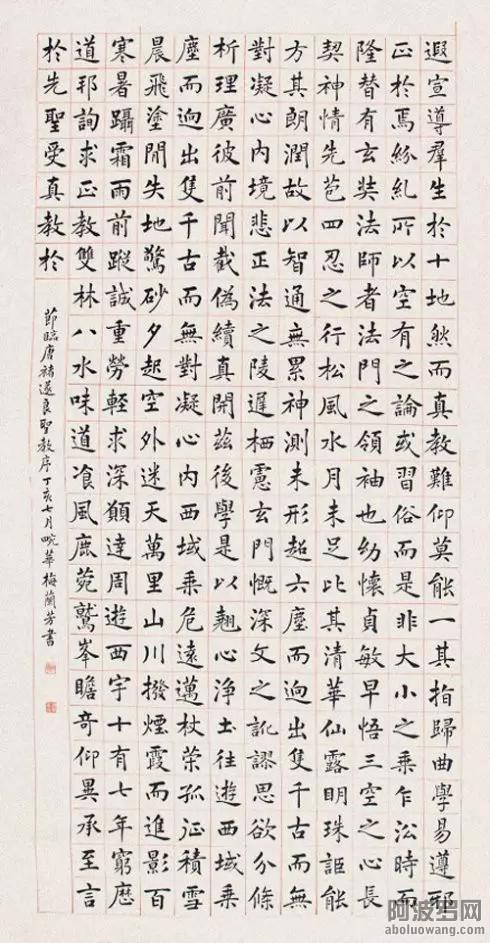 遐宣導羣生於十地然而真教難仰莫能一其指歸曲學易遵邪
正於焉紛糺所以空有之論或習俗而是非大小之乘乍沿時而
隆替有玄奘法師者法門之領袖也幼懷貞敏早悟三空之心長
契神情先苞四忍之行松風水月未足比其清華仙露明珠詎能
方其朗潤故以智通無累神測未形超六塵而逈出隻千古而無
對凝心內境悲正法之陵遲栖慮玄門慨深文之訛謬思欲分條
析理廣彼前聞截偽續真開茲後學是以翹心淨土往遊西域乘
塵而逈出隻千古而無對凝心內西域乘危遠邁杖策孤征積雪
晨飛塗閒失地驚砂夕起空外迷天萬里山川撥煙霞而進影百
寒暑躡霜雨前蹤誠重勞輕求深願達周遊西宇十有七年窮歷
道邦詢求正教雙林八水味道飡風鹿菀鷲峯瞻奇仰異承至言
於先聖受真教於
節臨唐褚遂良聖教序丁亥七月畹華梅蘭芳書
阿波罗网
aboluowang.com